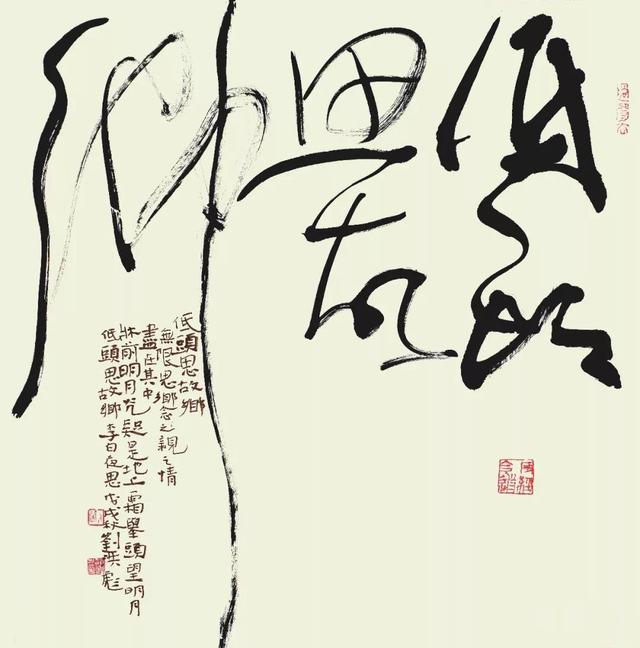 低頭
思故
鄉
低頭思故鄉
無限思鄉念之親之情
盡在其中
牀前明月光疑是地上霜舉頭望明月
低頭思故鄉李白夜思戊戌秋劉洪彪